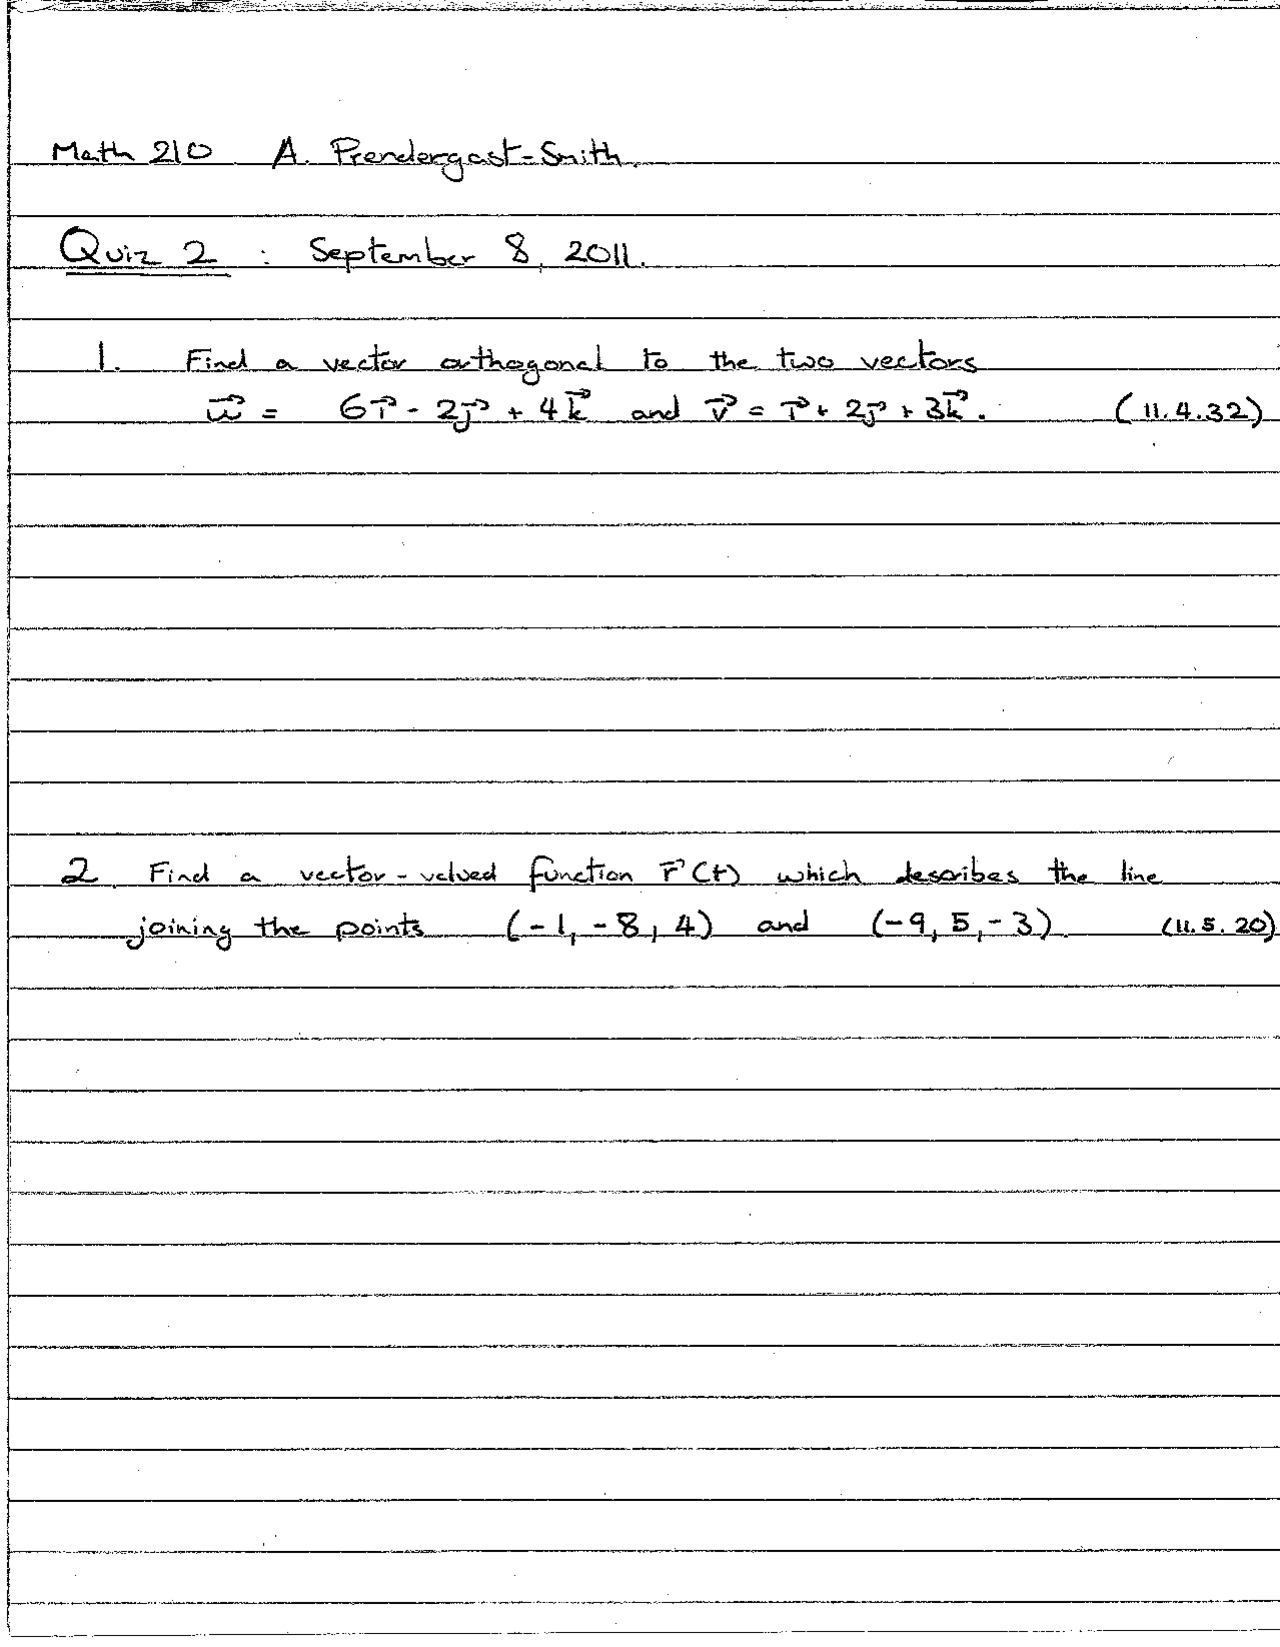 Math 210 A. Prendergast-Smith.
Quiz 2 : September 8, 2011.
1. Find a vector orthogonal to the two vectors
w⃗ = 6i⃗ - 2j⃗ + 4k⃗ and v⃗ = i⃗ + 2j⃗ + 3k⃗. (11.4.32)
2. Find a vector-valued function r⃗(t) which describes the line
joining the points (-1, -8, 4) and (-9, 5, -3). (11.5.20)